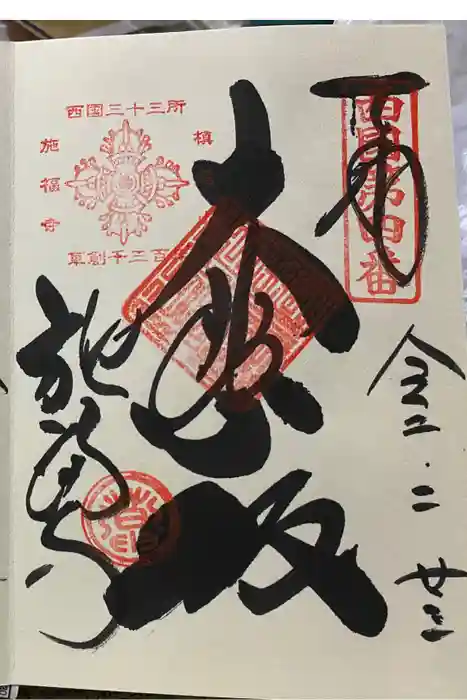 奉拝
西國第四番
令二・二 廿三
大悲殿
西国三十三所
槇
施福寺
草創千三百
施福寺